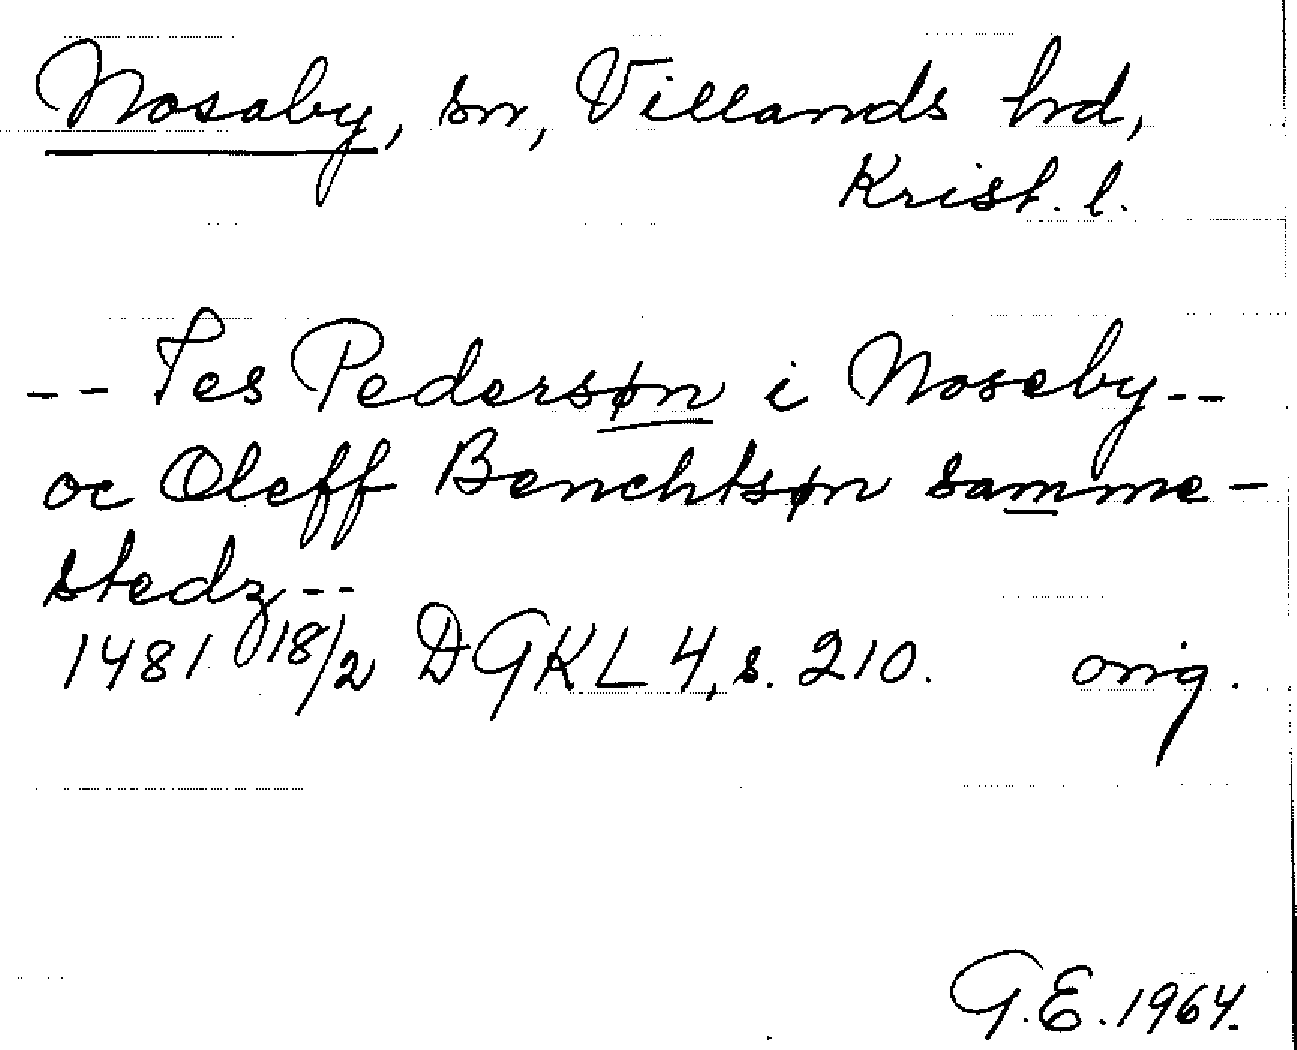 Nosaby, sn, Villands hrd,
Krist. l.
-- Jes Pedersøn i Noseby--
oc Oleff Benchtsøn samme-
stedz--
1481 18/2 DGKL 4, s. 210. orig.
G.E. 1964.